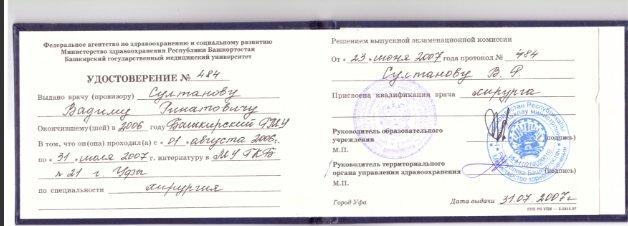 Федеральное агентство по здравоохранению и социальному развитию
Министерство здравоохранения Республики Башкортостан
Башкирский государственный медицинский университет
УДОСТОВЕРЕНИЕ № 484
Выдано врачу (провизору) Султанову
Вадиму Ринатовичу
Окончившему(ей) в 2006 году Башкирский ГМУ
В том, что он(она) проходил(а) с «01» августа 2006г.
по «31» июля 2007г. интернатуру в МУ ГКБ
№ 21 г. Уфы
по специальности хирургия
Решением выпускной экзаменационной комиссии
От «29» июня 2007 года протокол № 484
Султанову В. Р.
Присвоена квалификация врача хирурга
Руководитель образовательного
учреждения (подпись)
М.П.
Руководитель территориального
органа управления здравоохранения (подпись)
М.П.
Город Уфа Дата выдачи 31.07.2007г.